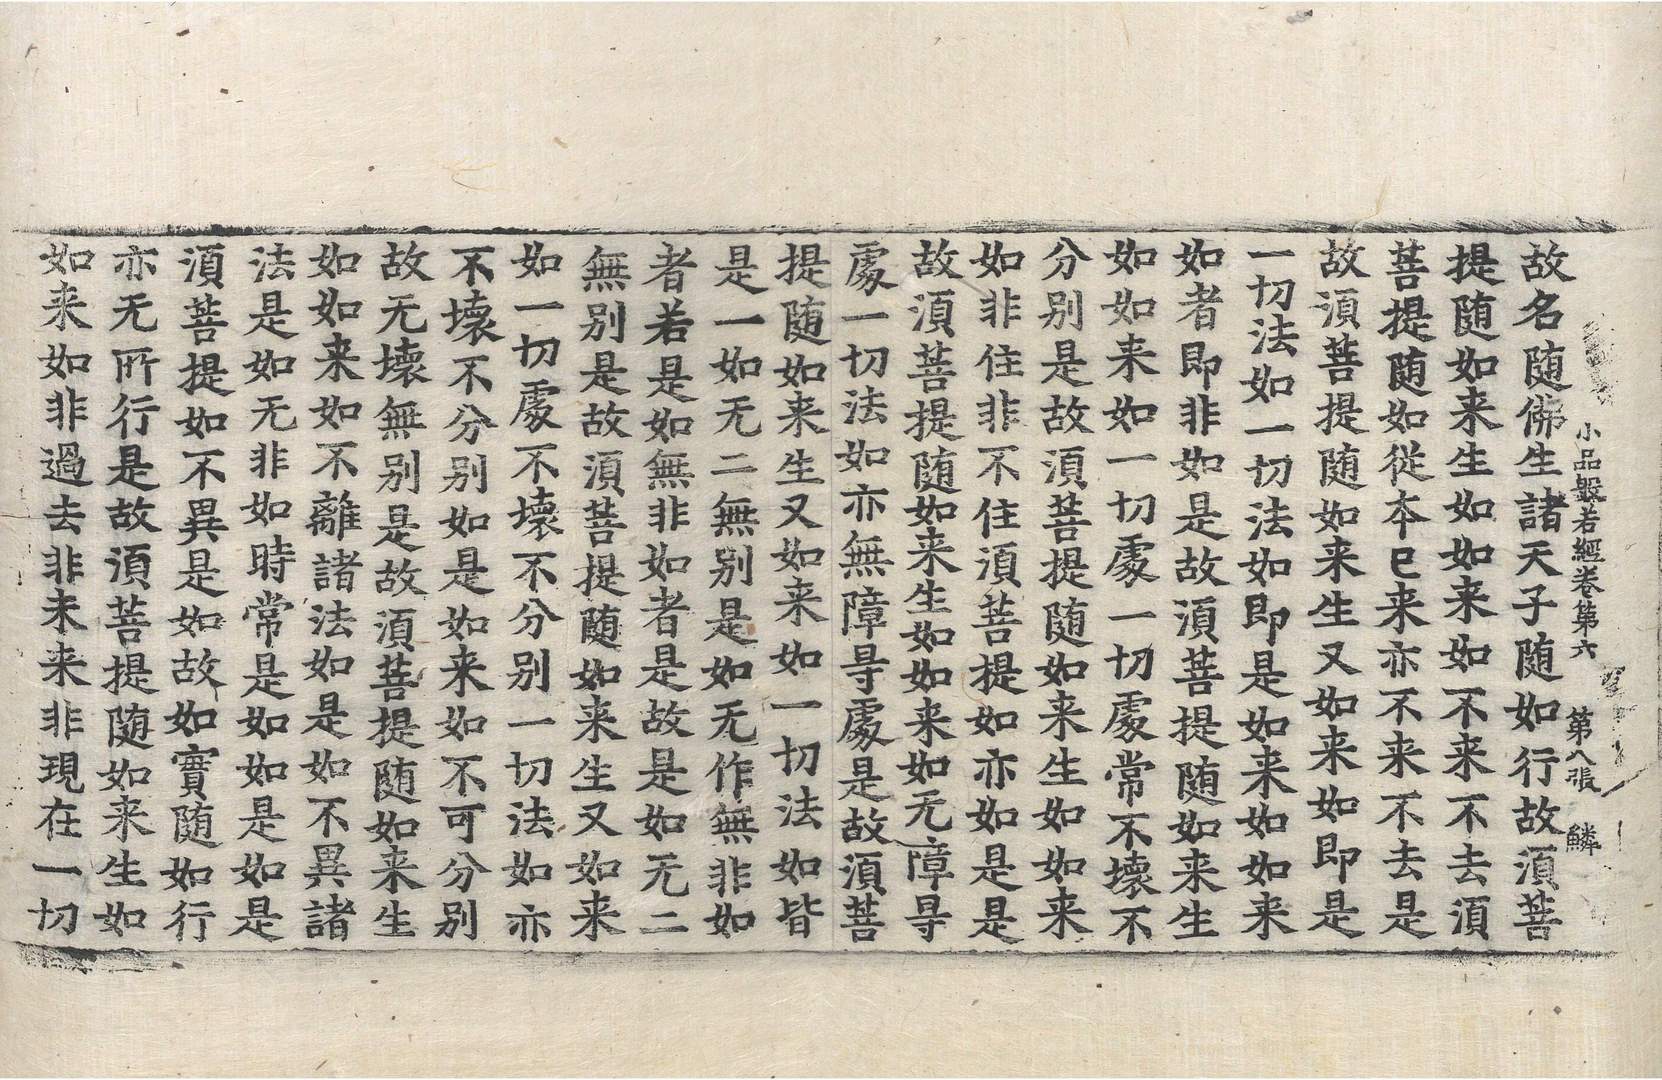 小品般若經卷第六 第八張 鱗
故名随佛生諸天子随如行故湏菩
提随如来生如如来如不来不去湏
菩提随如從本已来亦不来不去是
故湏菩提随如来生又如来如即是
一切法如一切法如即是如来如如来
如者即非如是故湏菩提随如来生
如如来如一切處一切處常不壞不
分别是故湏菩提随如来生如如来
如非住非不住湏菩提如亦如是
故湏菩提随如来生如如来如无障㝵
處一切法如亦無障㝵處是故湏菩
提随如来生又如来如一切法如皆
是一如无二無别是如无作無非如
者若是如無非如者是故是如无二
無别是故湏菩提随如来生又如来
如一切處不壞不分别一切法如亦
不壞不分别如是如来如不可分别
故无壞無别是故湏菩提随如来生
如如来如不離諸法如是如不異諸
法是如无非如時常是如如是如是
湏菩提如不異是如故如實随如行
亦无所行是故湏菩提随如来生如
如来如非過去非未来非現在一切